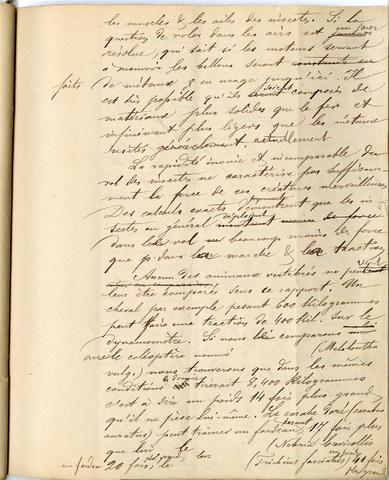 les muscles & les ailes des insectes. Si la
question de voler dans les airs est un jour
résolue, qui sait si les moteurs servant
à mouvoir les ballons seront construits en
faits de métaux en usage jusqu'ici. Il
est très possible qu'ils soient composés de
matériaux plus solides que le fer et
infiniment plus légers que les métaux
usités généralement actuellement
La rapidité inouïe & incomparable du
vol des insectes ne caractérise pas suffisam-
ment la force de ces créatures merveilleuses.
Des calculs exacts démontrent que les in-
sectes en général déploient
dans le vol beaucoup moins de force
que dans la marche & la traction
Aucun des animaux vertébrés ne peut
leur être comparé sous ce rapport. Un
cheval par exemple pesant 600 kilogrammes
peut faire une traction de 400 kil. sur le
dynamomètre. Si nous comparons
avec le coléoptère nommé (Melolontha
vulg.) nous trouverons que dans les mêmes
conditions tirerait 8,400 kilogrammes
c'est à dire un poids 14 fois plus grand
qu'il ne pèse lui-même. Le carabe doré (carabus
auratus) peut traîner un fardeau pesant 17 fois plus
que lui (Nebria brevicollis
un fardeau 20 fois, le (Trichius fasciatus) 41 fois
plus grand